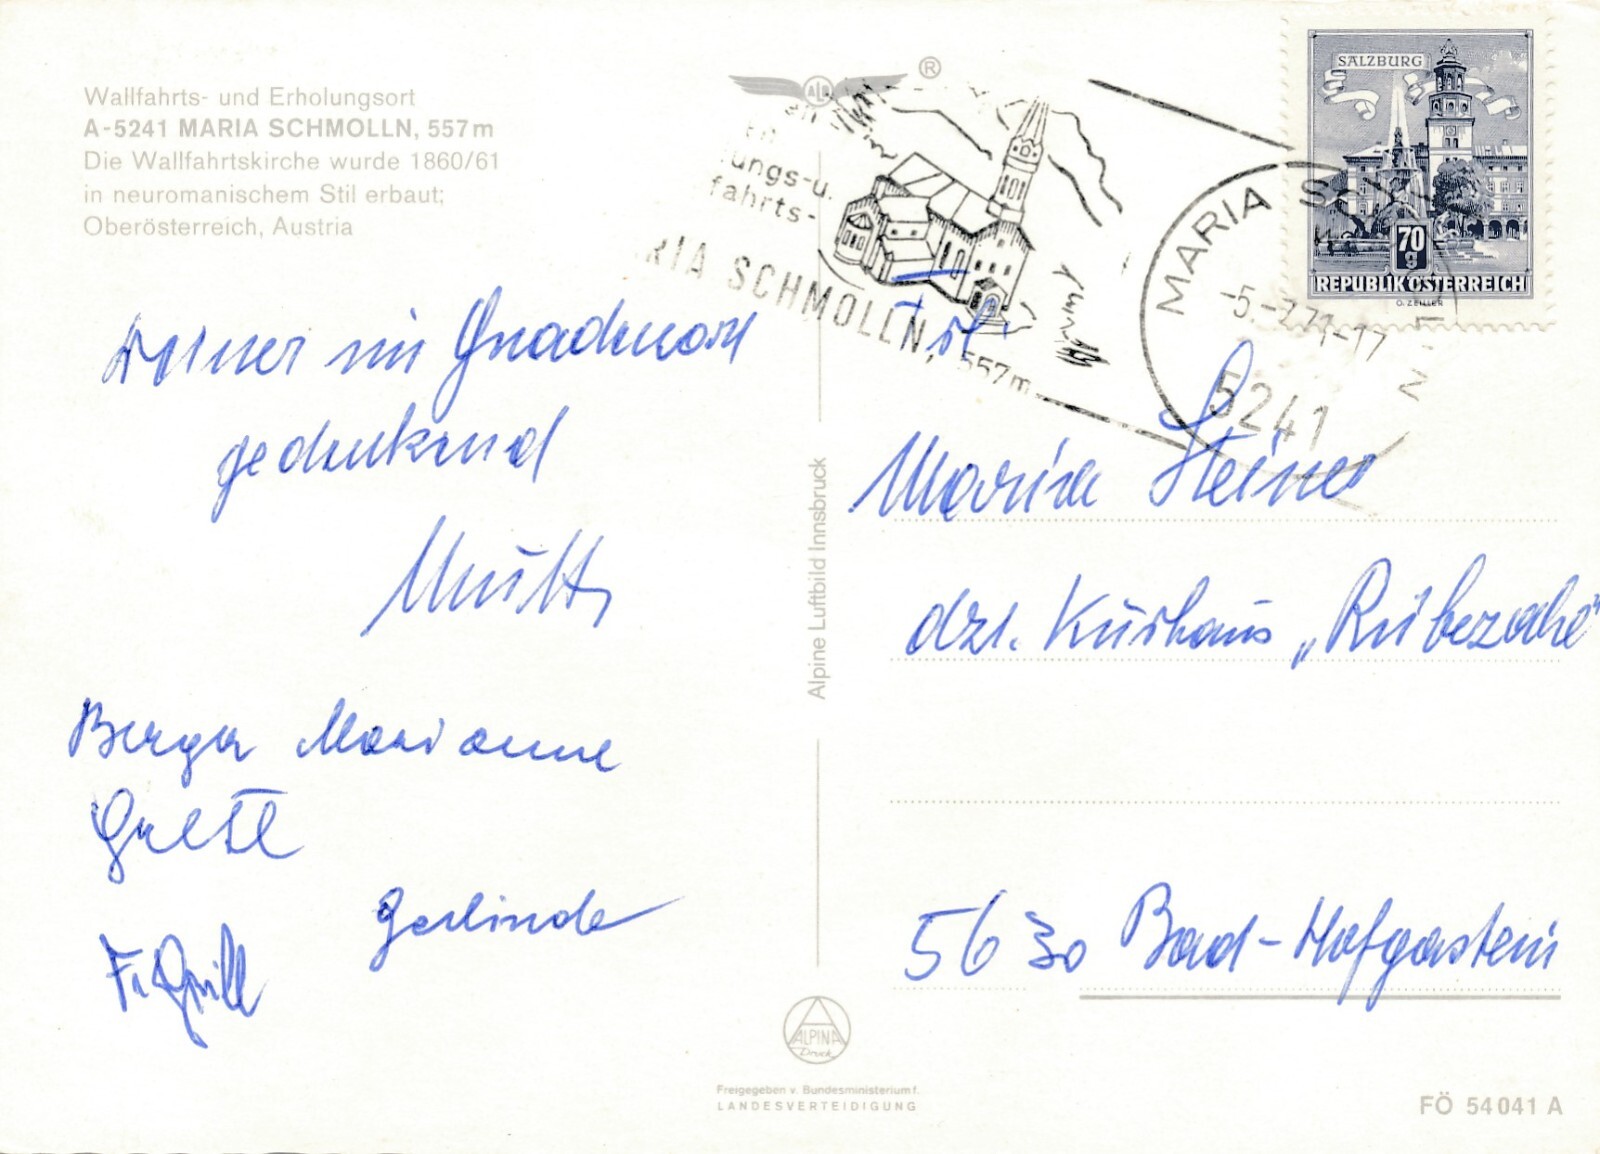 Wallfahrts- und Erholungsort
A-5241 MARIA SCHMOLLN, 557m
Die Wallfahrtskirche wurde 1860/61
in neuromanischem Stil erbaut;
Oberösterreich, Austria
im Gnadenort
gedenkend
Mutti
Berger Marianne
Gretl
Gerlinde
Alpine Luftbild Innsbruck
ALPINA
Druck
Freigegeben v. Bundesministerium f.
LANDESVERTEIDIGUNG
ALB ®
ungs-u.
fahrts-
RIA SCHMOLLN, 557m
MARIA
5241
SALZBURG
70
g
REPUBLIK ÖSTERREICH
O. ZEILLER
Maria Steiner
dzt. Kurhaus „Rübezahl"
5630 Bad-Hofgastein
FÖ 54041 A